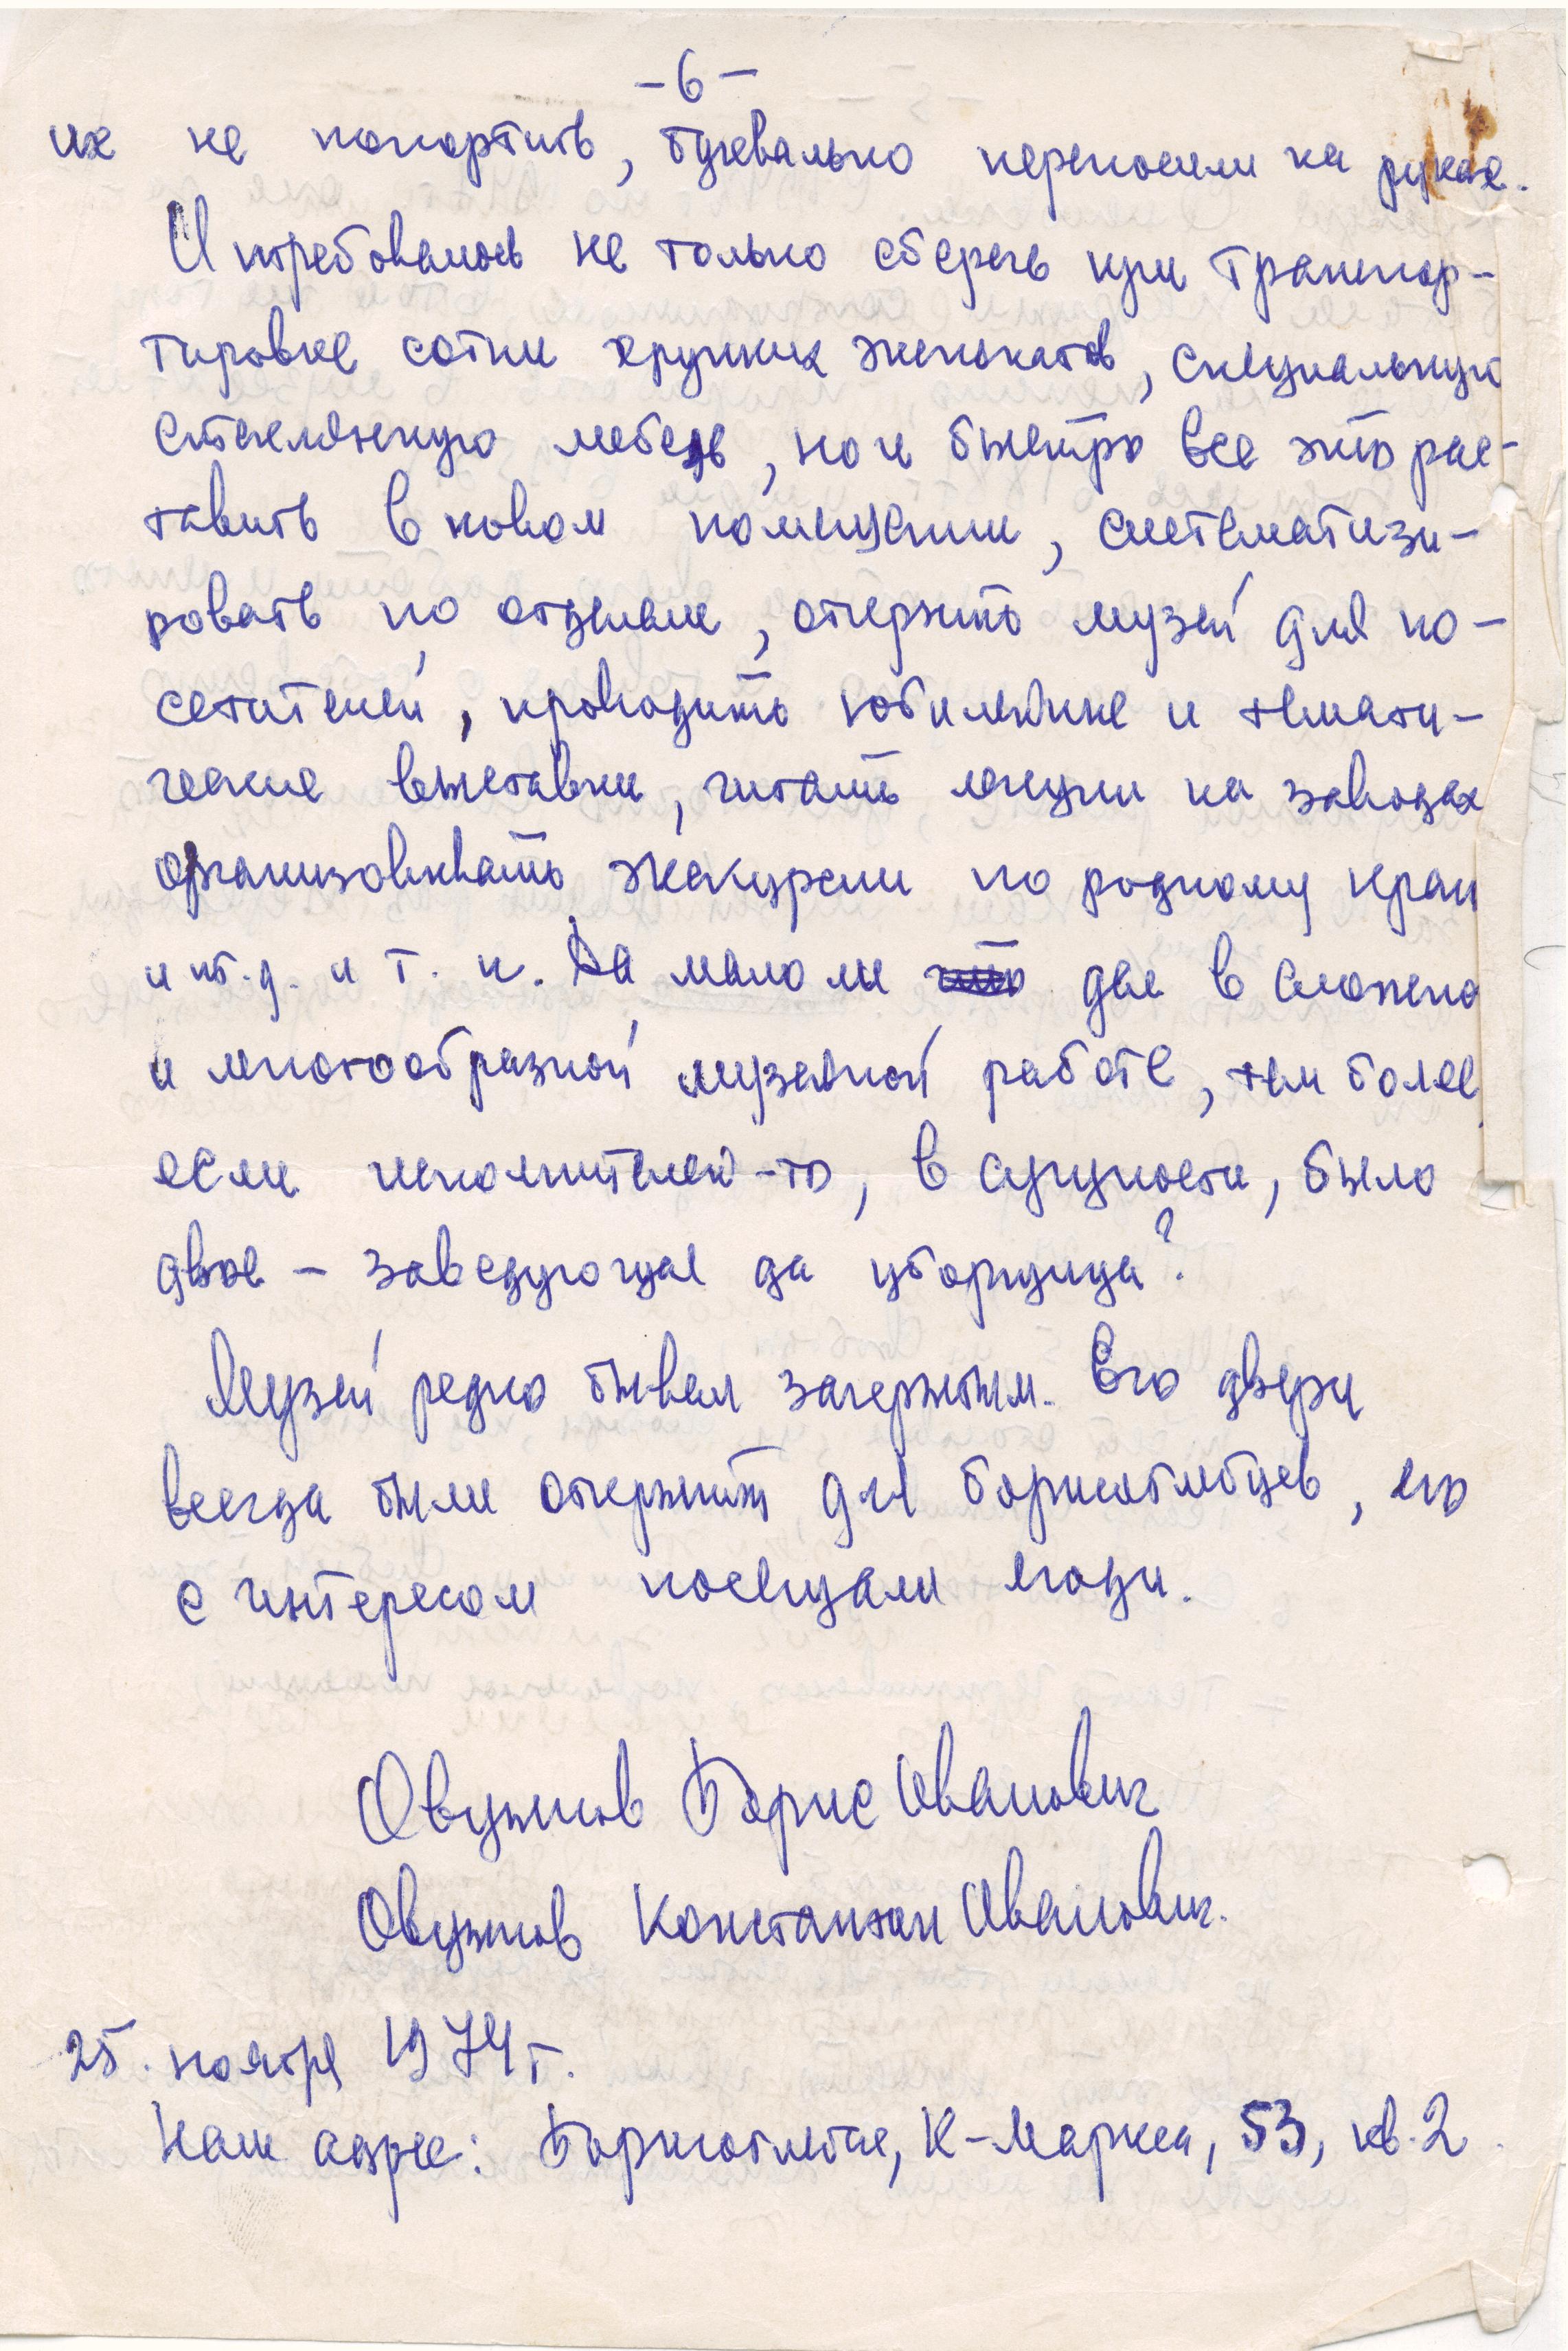 -6-
их не попортить, буквально переносили на руках.
И потребовалось не только сберечь при транспор-
тировке сотни хрупких экспонатов, специальную
стеклянную мебель, но и быстро все это рас-
тавить в новом помещении, систематизи-
ровать по отделам, открыть музей для по-
сетителей, проводить юбилейные и темати-
ческие выставки, читать лекции на заводах
организовывать экскурсии по родному краю
и т.д. и т.п. Да мало ли что дел в сложной
и многообразной музейной работе, тем более,
если исполнителей-то, в сущности, было
двое – заведующая да уборщица?
Музей редко бывал закрытым. Его двери
всегда были открыты для борисоглебцев, его
с интересом посещали люди.
Овужнов Борис Иванович
Овужнов Константин Иванович.
25 ноября 1974 г.
Наш адрес: Борисоглебск, К-Маркса, 53, кв. 2.